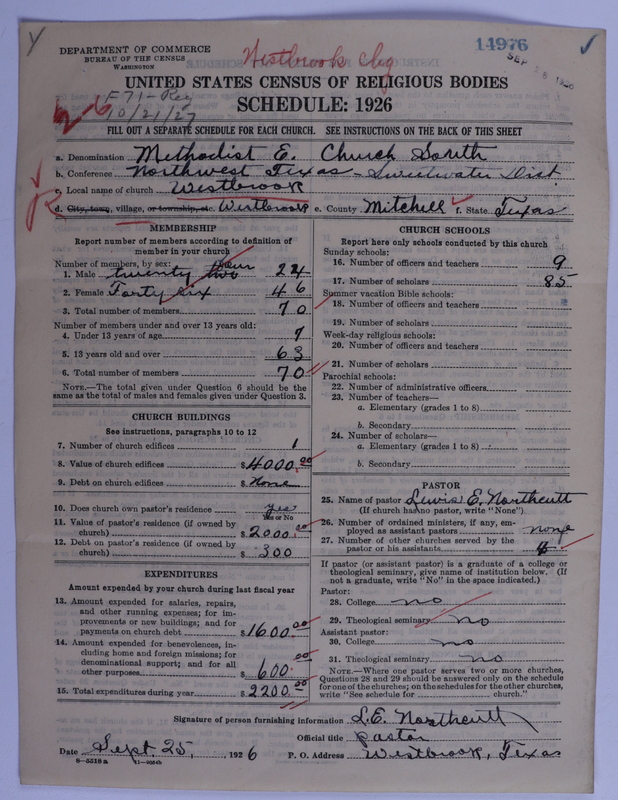 Y
Westbrook chg
14976
✓
DEPARTMENT OF COMMERCE
BUREAU OF THE CENSUS
WASHINGTON
SEP
UNITED STATES CENSUS OF RELIGIOUS BODIES
SCHEDULE: 1926
2-6
F71-Req
10/21/27
FILL OUT A SEPARATE SCHEDULE FOR EACH CHURCH. SEE INSTRUCTIONS ON THE BACK OF THIS SHEET
a. Denomination Methodist E. Church South
b. Conference Northwest Texas - Sweetwater Dist
c. Local name of church Westbrook
d. City, town, village, or township, etc. Westbrook e. County Mitchell f. State Texas
MEMBERSHIP
Report number of members according to definition of
member in your church
Number of members by sex:
1. Male twenty two four 24
2. Female Forty six 46
3. Total number of members 70
Number of members under and over 13 years old:
4. Under 13 years of age 7
5. 13 years old and over 63
6. Total number of members 70
NOTE.—The total given under Question 6 should be the
same as the total of males and females given under Question 3.
CHURCH BUILDINGS
See instructions, paragraphs 10 to 12
7. Number of church edifices 1
8. Value of church edifices $4000.00
9. Debt on church edifices $ None
10. Does church own pastor's residence yes
Yes or No
11. Value of pastor's residence (if owned by
church) $2000.00
12. Debt on pastor's residence (if owned by
church) $300
EXPENDITURES
Amount expended by your church during last fiscal year
13. Amount expended for salaries, repairs,
and other running expenses; for im-
provements or new buildings; and for
payments on church debt $1600.00
14. Amount expended for benevolences, in-
cluding home and foreign missions; for
denominational support; and for all
other purposes $600.00
15. Total expenditures during year $2200.00
CHURCH SCHOOLS
Report here only schools conducted by this church
Sunday schools:
16. Number of officers and teachers 9
17. Number of scholars 85
Summer vacation Bible schools:
18. Number of officers and teachers
19. Number of scholars
Week-day religious schools:
20. Number of officers and teachers
21. Number of scholars
Parochial schools:
22. Number of administrative officers
23. Number of teachers—
a. Elementary (grades 1 to 8)
b. Secondary
24. Number of scholars—
a. Elementary (grades 1 to 8)
b. Secondary
PASTOR
25. Name of pastor Lewis E. Northcutt
(If church has no pastor, write "None")
26. Number of ordained ministers, if any, em-
ployed as assistant pastors none
27. Number of other churches served by the
pastor or his assistants
If pastor (or assistant pastor) is a graduate of a college or
theological seminary, give name of institution below. (If
not a graduate, write "No" in the space indicated.)
Pastor:
28. College no
29. Theological seminary no
Assistant pastor:
30. College no
31. Theological seminary no
NOTE.—Where one pastor serves two or more churches,
Questions 28 and 29 should be answered only on the schedule
for one of the churches; on the schedules for the other churches,
write "See schedule for church."
Signature of person furnishing information L.E. Northcutt
Official title pastor
Date Sept. 25, 1926 P. O. Address Westbrook, Texas
8-5318a